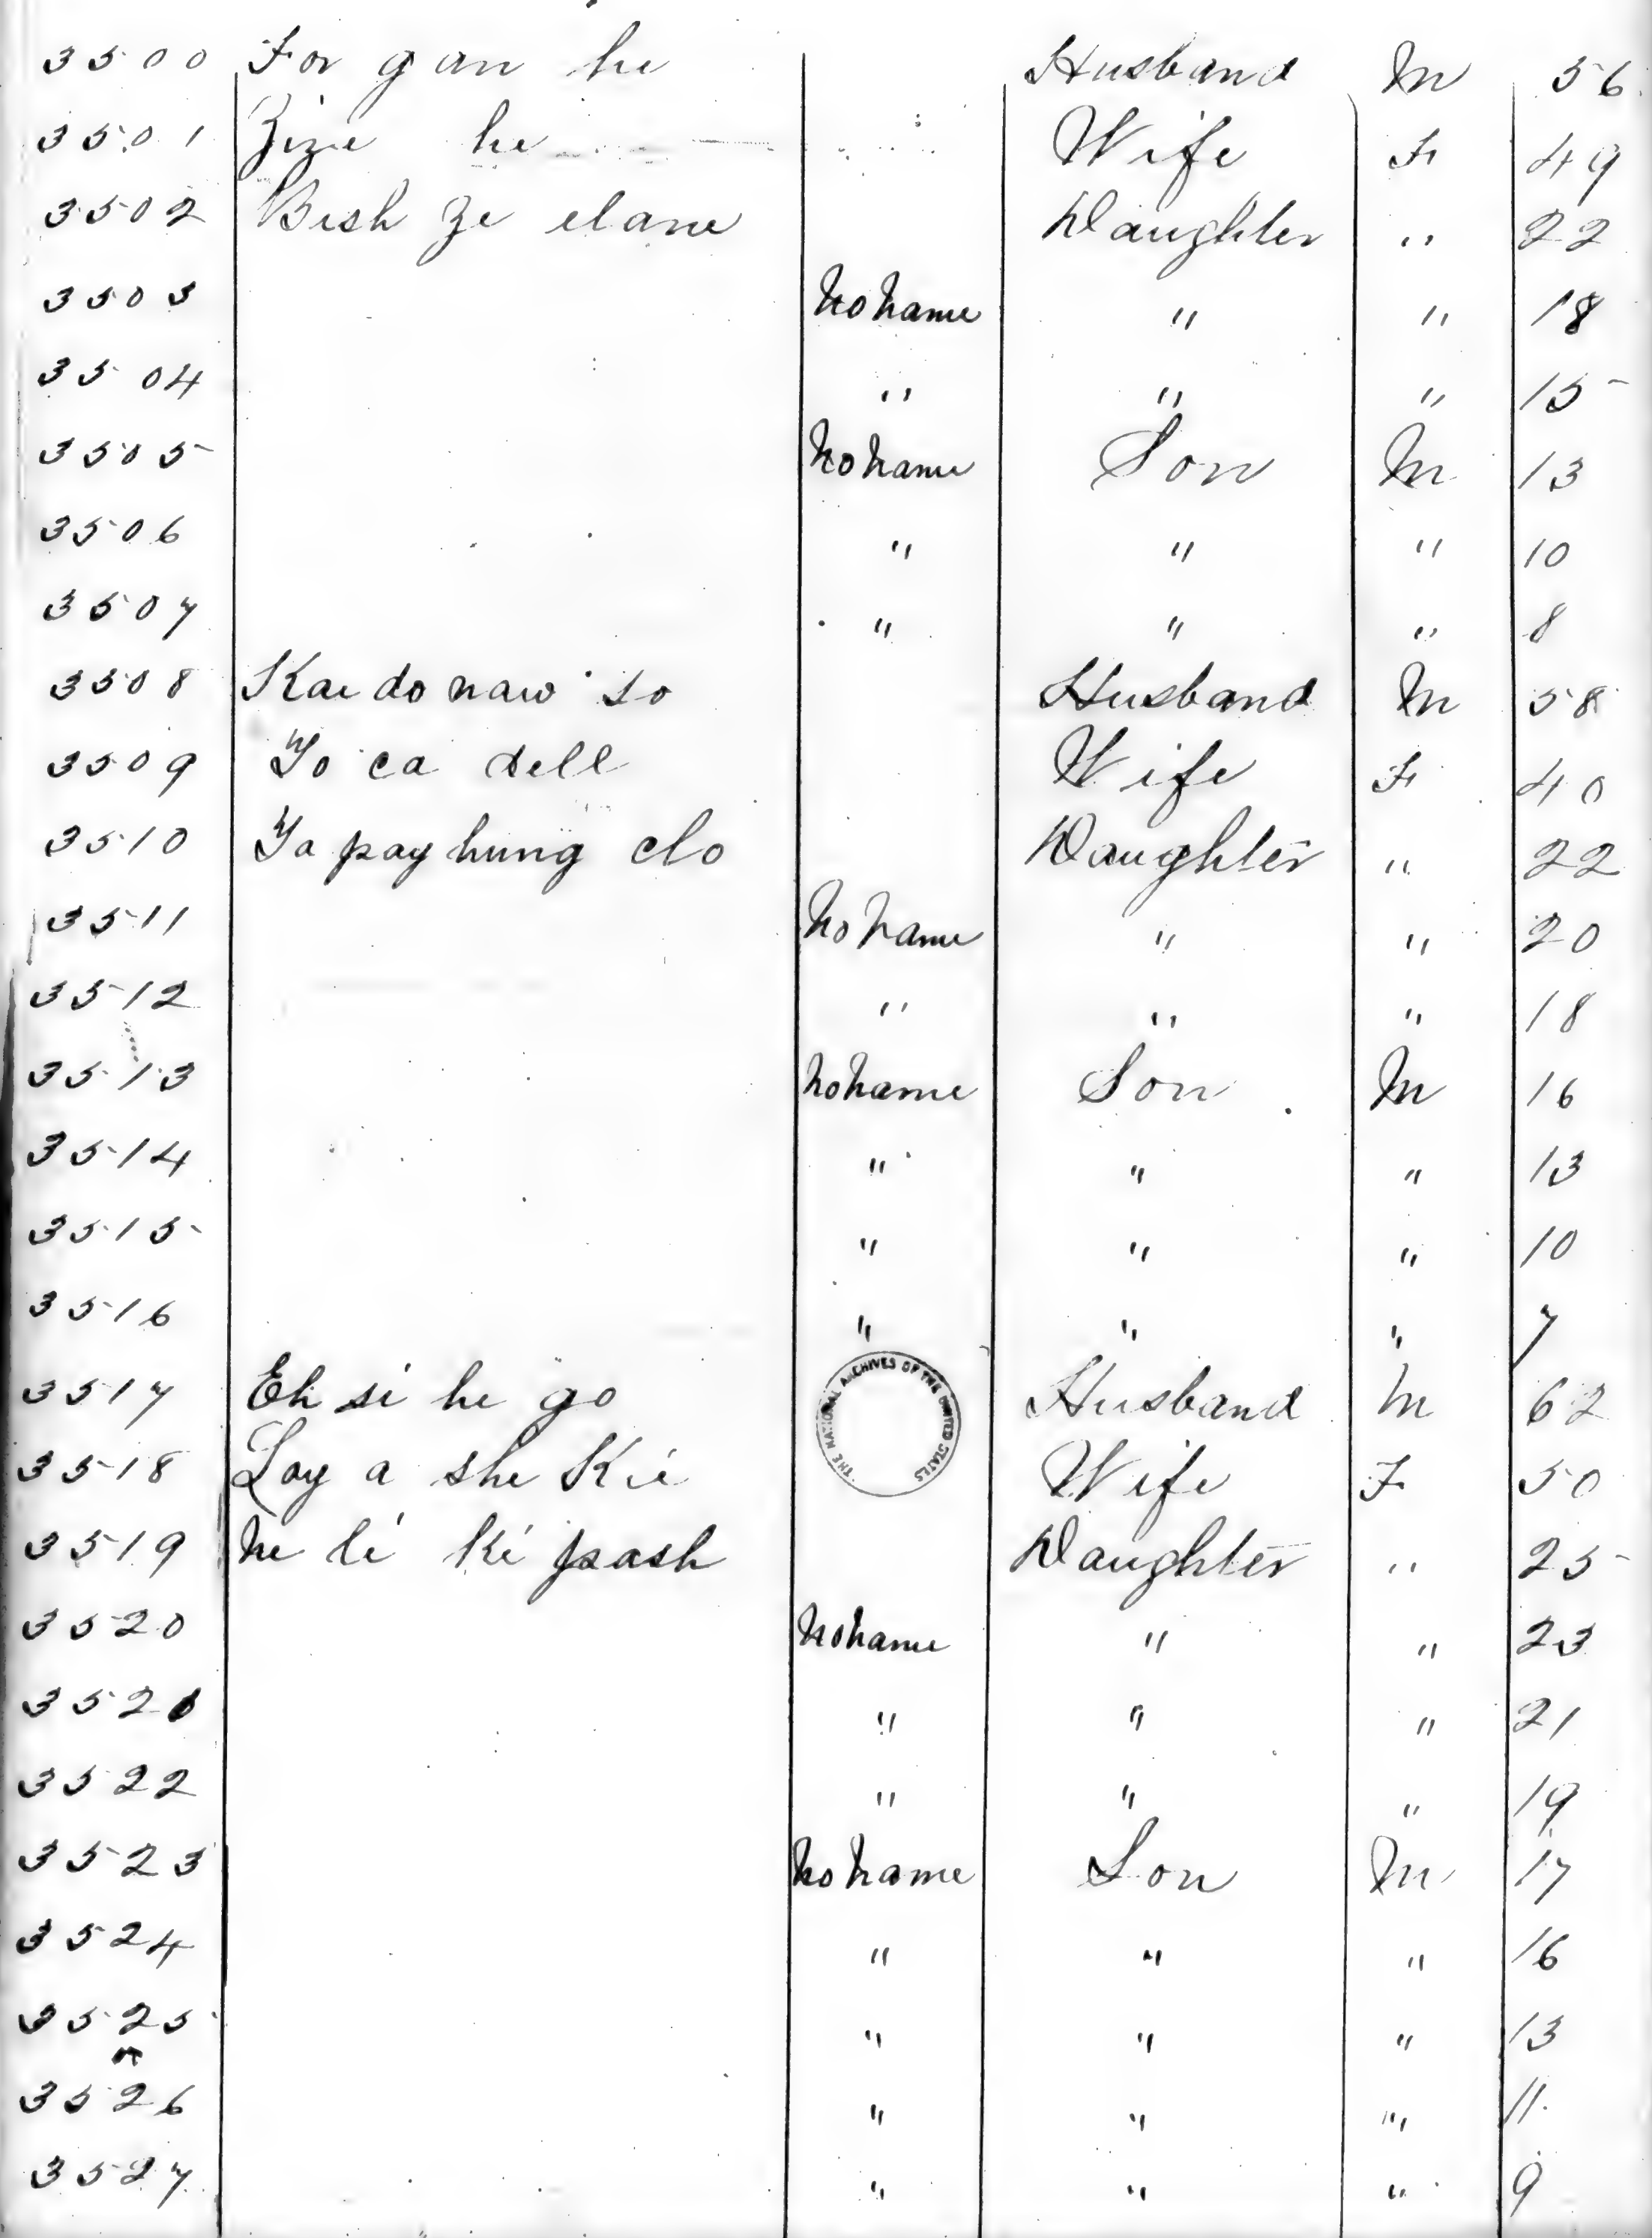 3500 For gan he Husband M 56
3501 Zize he Wife F 49
3502 Bish ze elane Daughter " 22
3503 No Name " " 18
3504 " " " 15
3505 No Name Son M 13
3506 " " " 10
3507 " " " 8
3508 Kae do naw so Husband M 58
3509 Yo ca dell Wife F 40
3510 Ya pay hung clo Daughter " 22
3511 No Name " " 20
3512 " " " 18
3513 No Name Son M 16
3514 " " " 13
3515 " " " 10
3516 " " " 7
3517 Eh si he go Husband M 62
THE NATIONAL ARCHIVES OF THE UNITED STATES
3518 Lay a she Kie Wife F 50
3519 Ne li ki pash Daughter " 25
3520 No Name " " 23
3521 " " " 21
3522 " " " 19
3523 No Name Son M 17
3524 " " " 16
3525 " " " 13
3526 " " " 11
3527 " " " 9